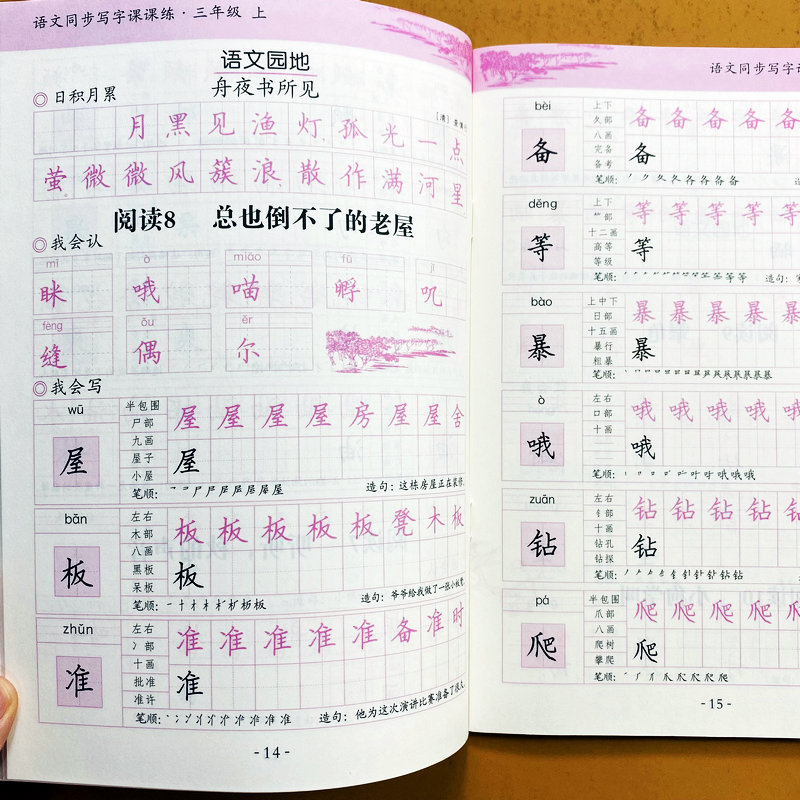 语文同步写字课课练·三年级 上
语文园地
日积月累
舟夜书所见
月黑见渔灯孤光一点
萤微微风簇浪散作满河星
阅读8 总也倒不了的老屋
我会认
mī ò miāo fū jī
眯 哦 喵 孵 叽
fèng ǒu ěr
缝 偶 尔
我会写
wū 半包围 屋屋屋屋房屋屋舍
尸部
屋 九画 屋
屋子
小屋
笔顺: 造句:这栋房屋正在装修
bǎn 左右 板板板板板凳木板
木部
板 八画 板
黑板
呆板
笔顺: 造句:爷爷给我做了一张小板凳
zhǔn 左右 准准准准准备准时
冫部
准 十画 准
批准
准许
笔顺: 造句:他为这次演讲比赛准备了很久
- 14 -
语文同步写字课
bèi 上下 备备备备备
久部
备 八画 备
完备
备考
笔顺: 造
děng 上下 等等等等等
⺮部
等 十二画 等
高等
等级
笔顺: 造句:
bào 上中下 暴暴暴暴暴
日部
暴 十五画 暴
暴行
粗暴
笔顺:
ò 左右 哦哦哦哦哦
口部
哦 十画 哦
笔顺:
zuān 左右 钻钻钻钻钻
钅部
钻 十画 钻
钻孔
钻探
笔顺:
pá 半包围 爬爬爬爬爬
爪部
爬 八画 爬
爬树
攀爬
笔顺:
- 15 -